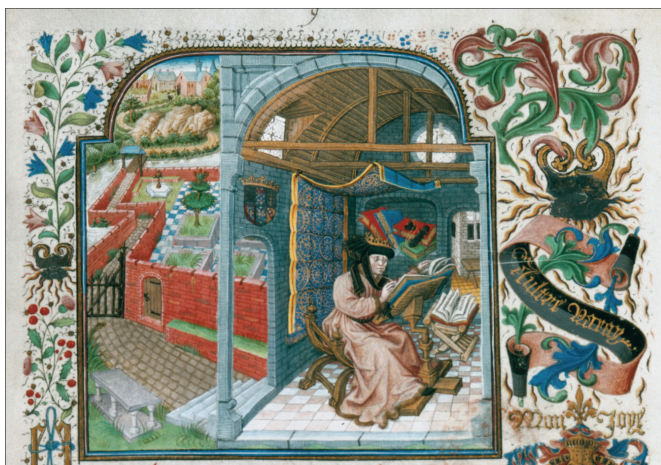 9
Aultre Naray
Mon Joye